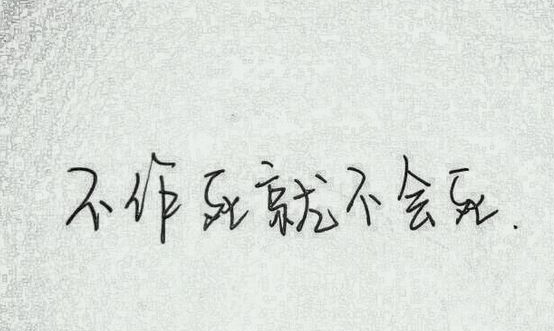 不作死就不会死.